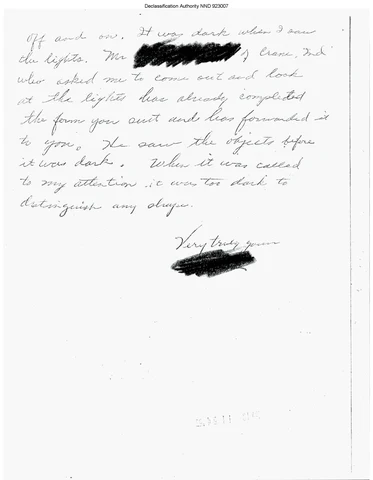 Declassification Authority NND 923007
off and on. It was dark when I saw
the lights. Mr of Crane, Ind
who asked me to come out and look
at the lights has already completed
the form you sent and has forwarded it
to you. He saw the objects before
it was dark. When it was called
to my attention it was too dark to
distinguish any shape.
Very truly yours